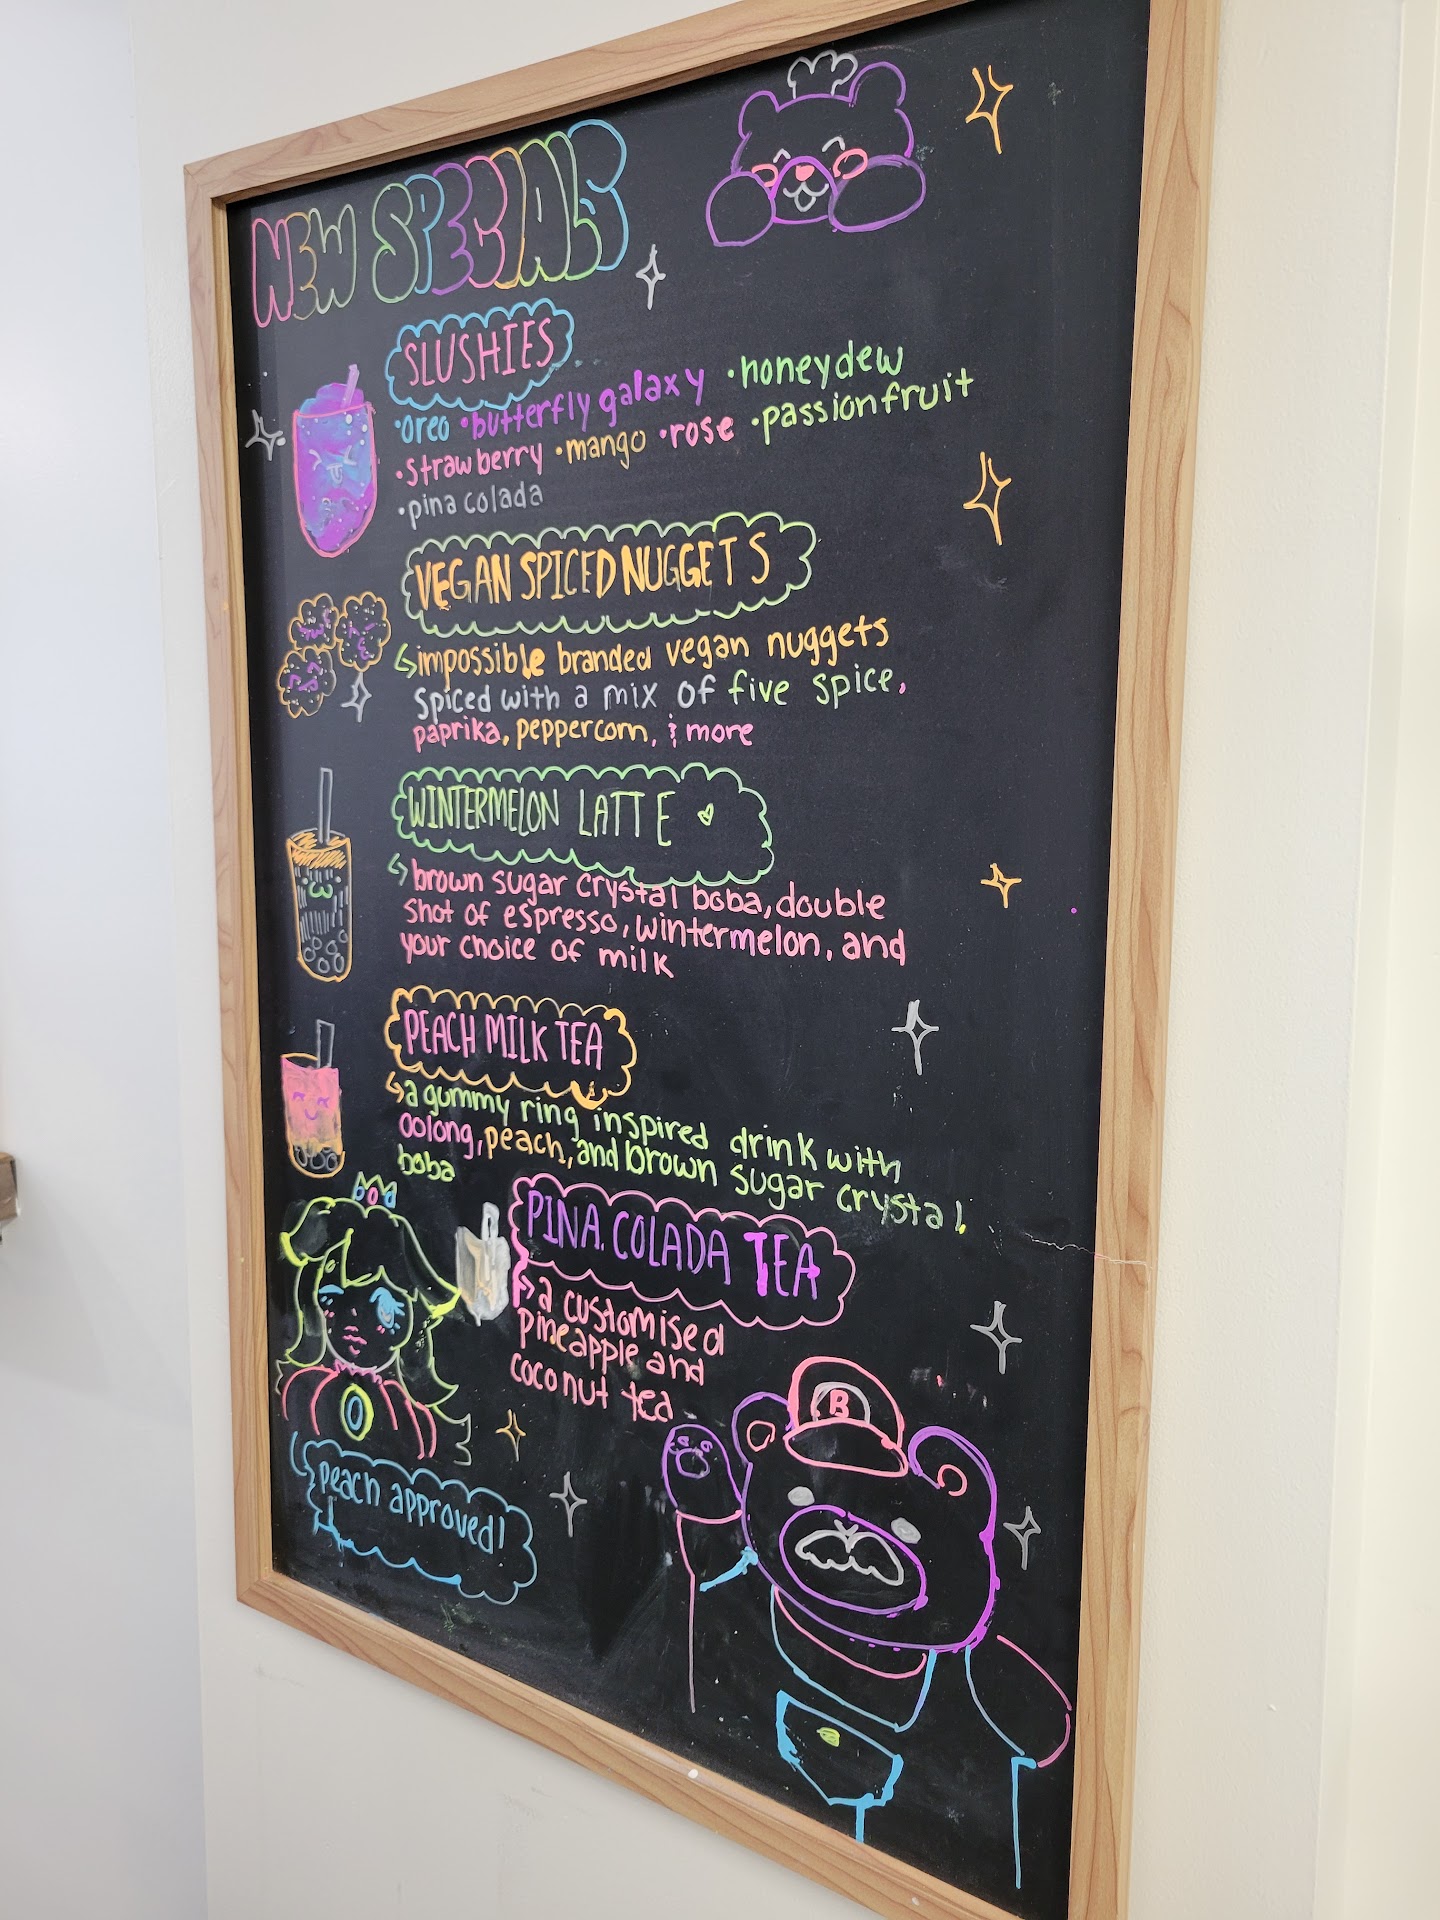 NEW SPECIALS
SLUSHIES
•oreo •butterfly galaxy •honeydew
•strawberry •mango •rose •passionfruit
•pina colada
VEGAN SPICED NUGGETS
impossible branded vegan nuggets
spiced with a mix of five spice,
paprika, peppercorn, & more
WINTERMELON LATTE
brown sugar crystal boba, double
shot of espresso, wintermelon, and
your choice of milk
PEACH MILK TEA
a gummy ring inspired drink with
oolong, peach, and brown sugar crystal
boba
PINA COLADA TEA
a customised
pineapple and
coconut tea
peach approved!
B